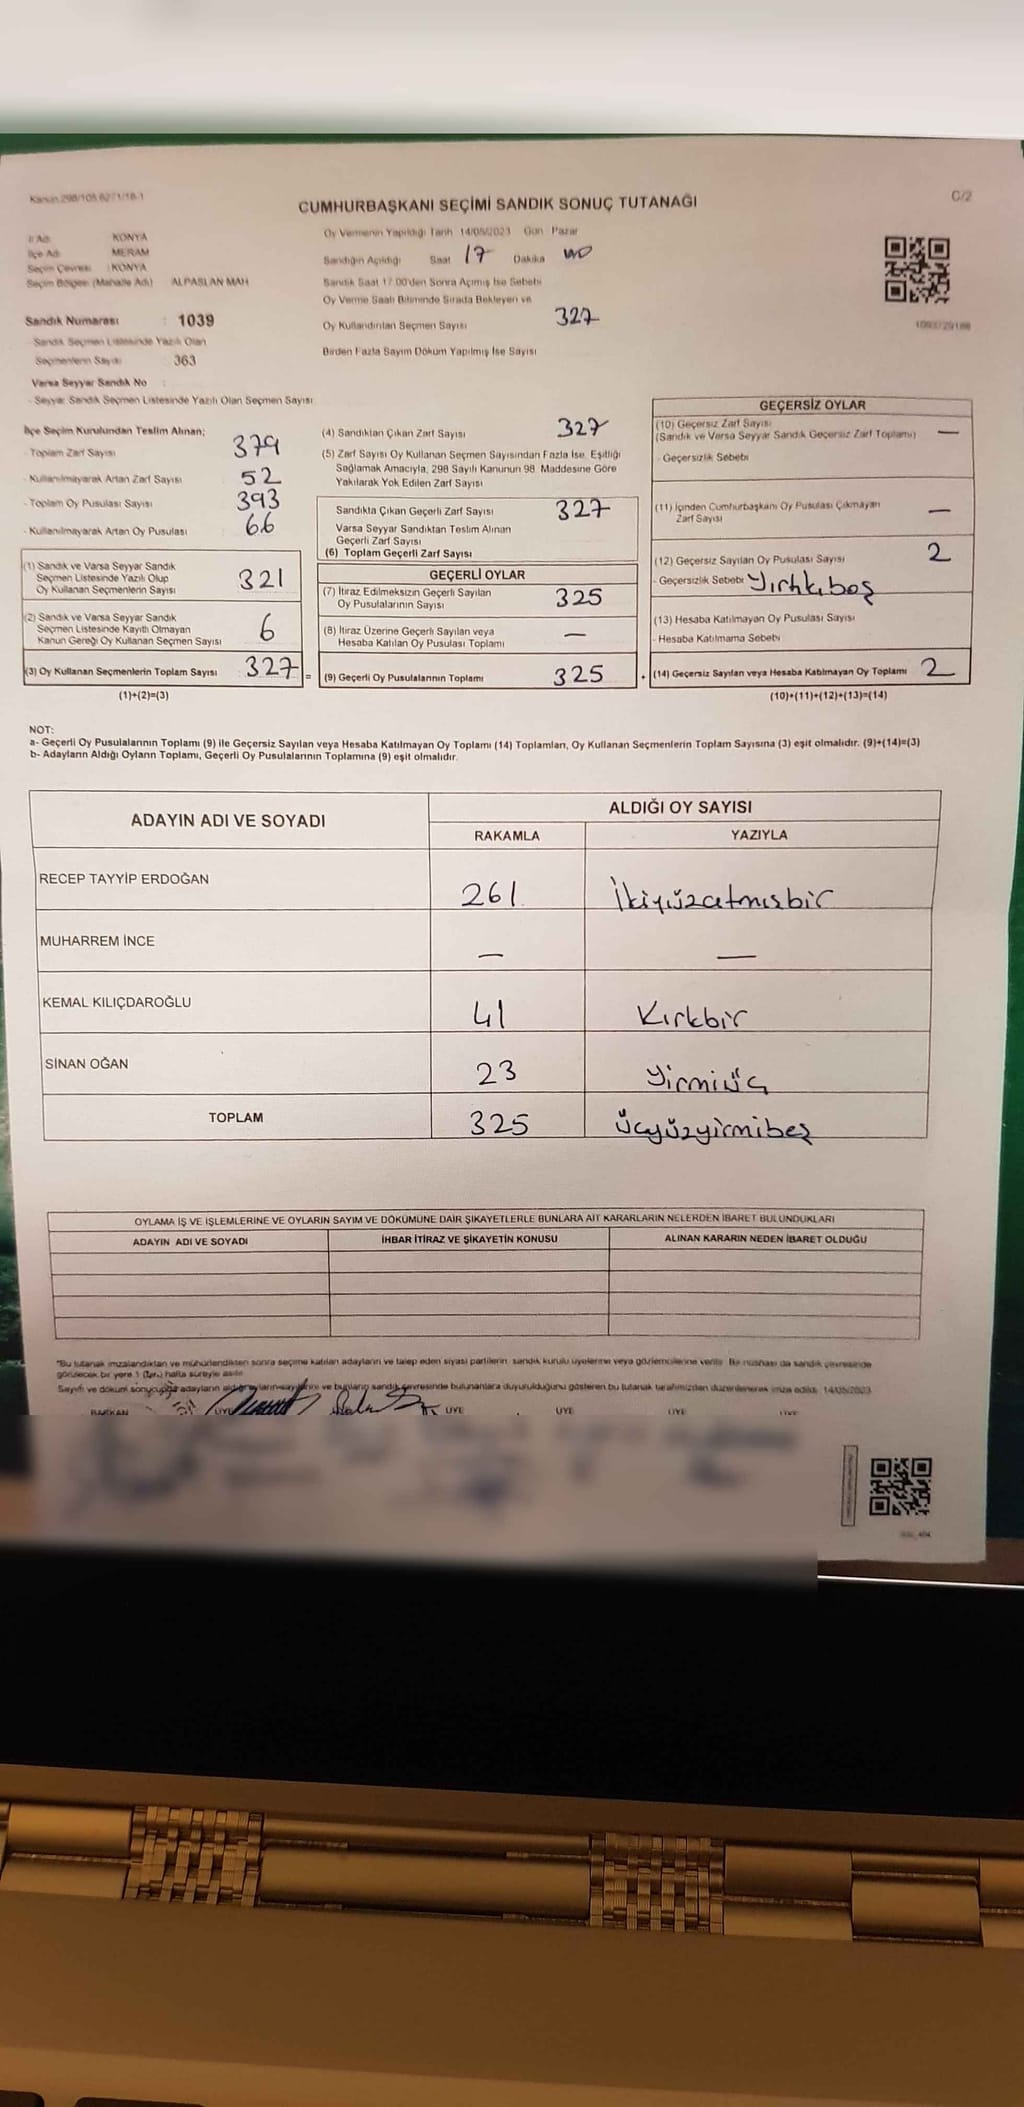 CUMHURBAŞKANI SEÇİMİ SANDIK SONUÇ TUTANAĞI
C/2
İl Adı KONYA
İlçe Adı MERAM
Seçim Çevresi : KONYA
Seçim Bölgesi (Mahalle Adı) ALPASLAN MAH
Sandık Numarası : 1039
- Sandık Seçmen Listesinde Yazılı Olan
Seçmenlerin Sayısı 363
Varsa Seyyar Sandık No :
- Seyyar Sandık Seçmen Listesinde Yazılı Olan Seçmen Sayısı
Oy Vermenin Yapıldığı Tarih 14/05/2023 Gün Pazar
Sandığın Açıldığı Saat 17 Dakika
Sandık Saat 17.00'den Sonra Açmış İse Sebebi
Oy Verme Saati Bitiminde Sırada Bekleyen ve
Oy Kullandırılan Seçmen Sayısı 327
Birden Fazla Sayım Döküm Yapılmış İse Sayısı
İlçe Seçim Kurulundan Teslim Alınan;
- Toplam Zarf Sayısı 379
- Kullanılmayarak Artan Zarf Sayısı 52
- Toplam Oy Pusulası Sayısı 393
- Kullanılmayarak Artan Oy Pusulası 66
(1) Sandık ve Varsa Seyyar Sandık
Seçmen Listesinde Yazılı Olup
Oy Kullanan Seçmenlerin Sayısı 321
(2) Sandık ve Varsa Seyyar Sandık
Seçmen Listesinde Kayıtlı Olmayan
Kanun Gereği Oy Kullanan Seçmen Sayısı 6
(3) Oy Kullanan Seçmenlerin Toplam Sayısı 327 =
(1)+(2)=(3)
(4) Sandıktan Çıkan Zarf Sayısı 327
(5) Zarf Sayısı Oy Kullanan Seçmen Sayısından Fazla İse, Eşitliği
Sağlamak Amacıyla, 298 Sayılı Kanunun 98. Maddesine Göre
Yakılarak Yok Edilen Zarf Sayısı
Sandıkta Çıkan Geçerli Zarf Sayısı 327
Varsa Seyyar Sandıktan Teslim Alınan
Geçerli Zarf Sayısı
(6) Toplam Geçerli Zarf Sayısı
GEÇERLİ OYLAR
(7) İtiraz Edilmeksizin Geçerli Sayılan
Oy Pusulalarının Sayısı 325
(8) İtiraz Üzerine Geçerli Sayılan veya
Hesaba Katılan Oy Pusulası Toplamı —
(9) Geçerli Oy Pusulalarının Toplamı 325 +
GEÇERSİZ OYLAR
(10) Geçersiz Zarf Sayısı
(Sandık ve Varsa Seyyar Sandık Geçersiz Zarf Toplamı) —
- Geçersizlik Sebebi
(11) İçinden Cumhurbaşkanı Oy Pusulası Çıkmayan
Zarf Sayısı —
(12) Geçersiz Sayılan Oy Pusulası Sayısı 2
- Geçersizlik Sebebi Yırtık,boş
(13) Hesaba Katılmayan Oy Pusulası Sayısı
- Hesaba Katılmama Sebebi
(14) Geçersiz Sayılan veya Hesaba Katılmayan Oy Toplamı 2
(10)+(11)+(12)+(13)=(14)
NOT:
a- Geçerli Oy Pusulalarının Toplamı (9) ile Geçersiz Sayılan veya Hesaba Katılmayan Oy Toplamı (14) Toplamları, Oy Kullanan Seçmenlerin Toplam Sayısına (3) eşit olmalıdır. (9)+(14)=(3)
b- Adayların Aldığı Oyların Toplamı, Geçerli Oy Pusulalarının Toplamına (9) eşit olmalıdır.
ADAYIN ADI VE SOYADI ALDIĞI OY SAYISI
RAKAMLA YAZIYLA
RECEP TAYYİP ERDOĞAN 261 İkiyüzatmışbir
MUHARREM İNCE — —
KEMAL KILIÇDAROĞLU 41 Kırkbir
SİNAN OĞAN 23 Yirmiüç
TOPLAM 325 Üçyüzyirmibeş
OYLAMA İŞ VE İŞLEMLERİNE VE OYLARIN SAYIM VE DÖKÜMÜNE DAİR ŞİKAYETLERLE BUNLARA AİT KARARLARIN NELERDEN İBARET BULUNDUKLARI
ADAYIN ADI VE SOYADI İHBAR İTİRAZ VE ŞİKAYETİN KONUSU ALINAN KARARIN NEDEN İBARET OLDUĞU
*Bu tutanak imzalandıktan ve mühürlendikten sonra seçime katılan adayların ve talep eden siyasi partilerin sandık kurulu üyelerine veya gözlemcilerine verilir. Bir nüshası da sandık çevresinde
görülecek bir yere 1 (bir) hafta süreyle asılır.
Sayım ve döküm sonucunda adayların aldığı oyların sayılarını ve bunların sandık çevresinde bulunanlara duyurulduğunu gösteren bu tutanak tarafımızdan düzenlenerek imza edildi. 14/05/2023
BAŞKAN ÜYE ÜYE ÜYE ÜYE